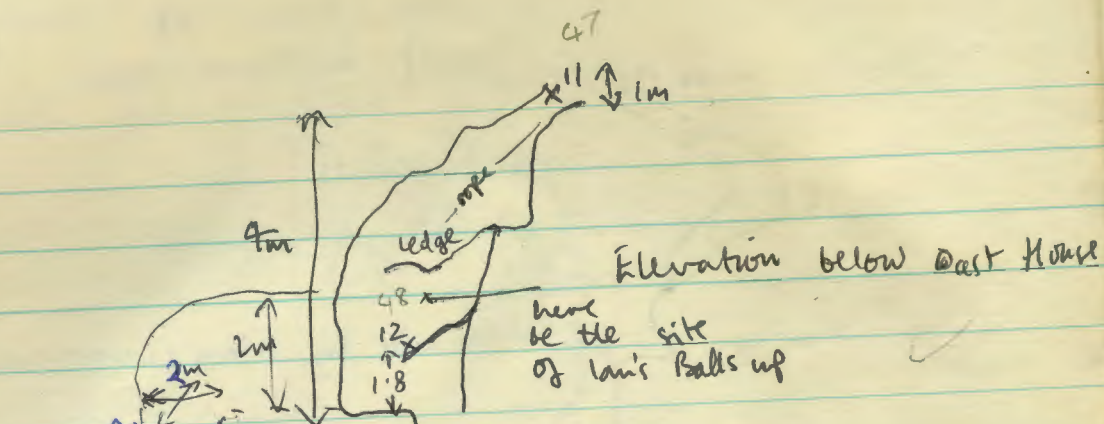 47
11
1m
rope
4m
ledge
Elevation below East House
48
here
be the site
of Ian's Balls up
12
2m
2m
1.8